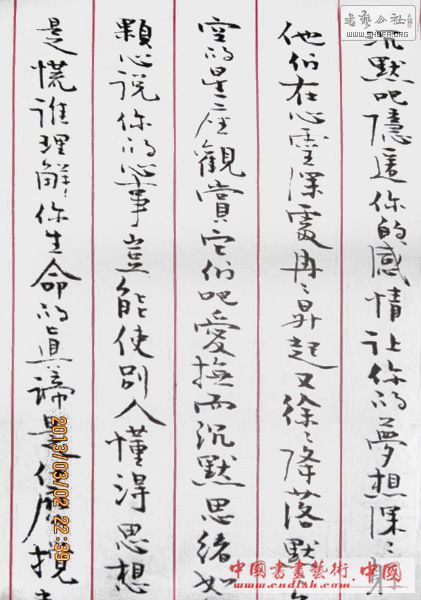 沉默吧隱匿你的感情让你的夢想深々躲
他们在心靈深處冉々昇起又徐々降落默
空的星座觀賞它们吧愛撫而沉默思緒如
顆心说你的心事豈能使别人懂得思想
是慌谁理解你生命的真諦是什麽攪
書藝公社
WWW.SHUFA.ORG
2013/03/02 22:39
中國書畫藝術·中國